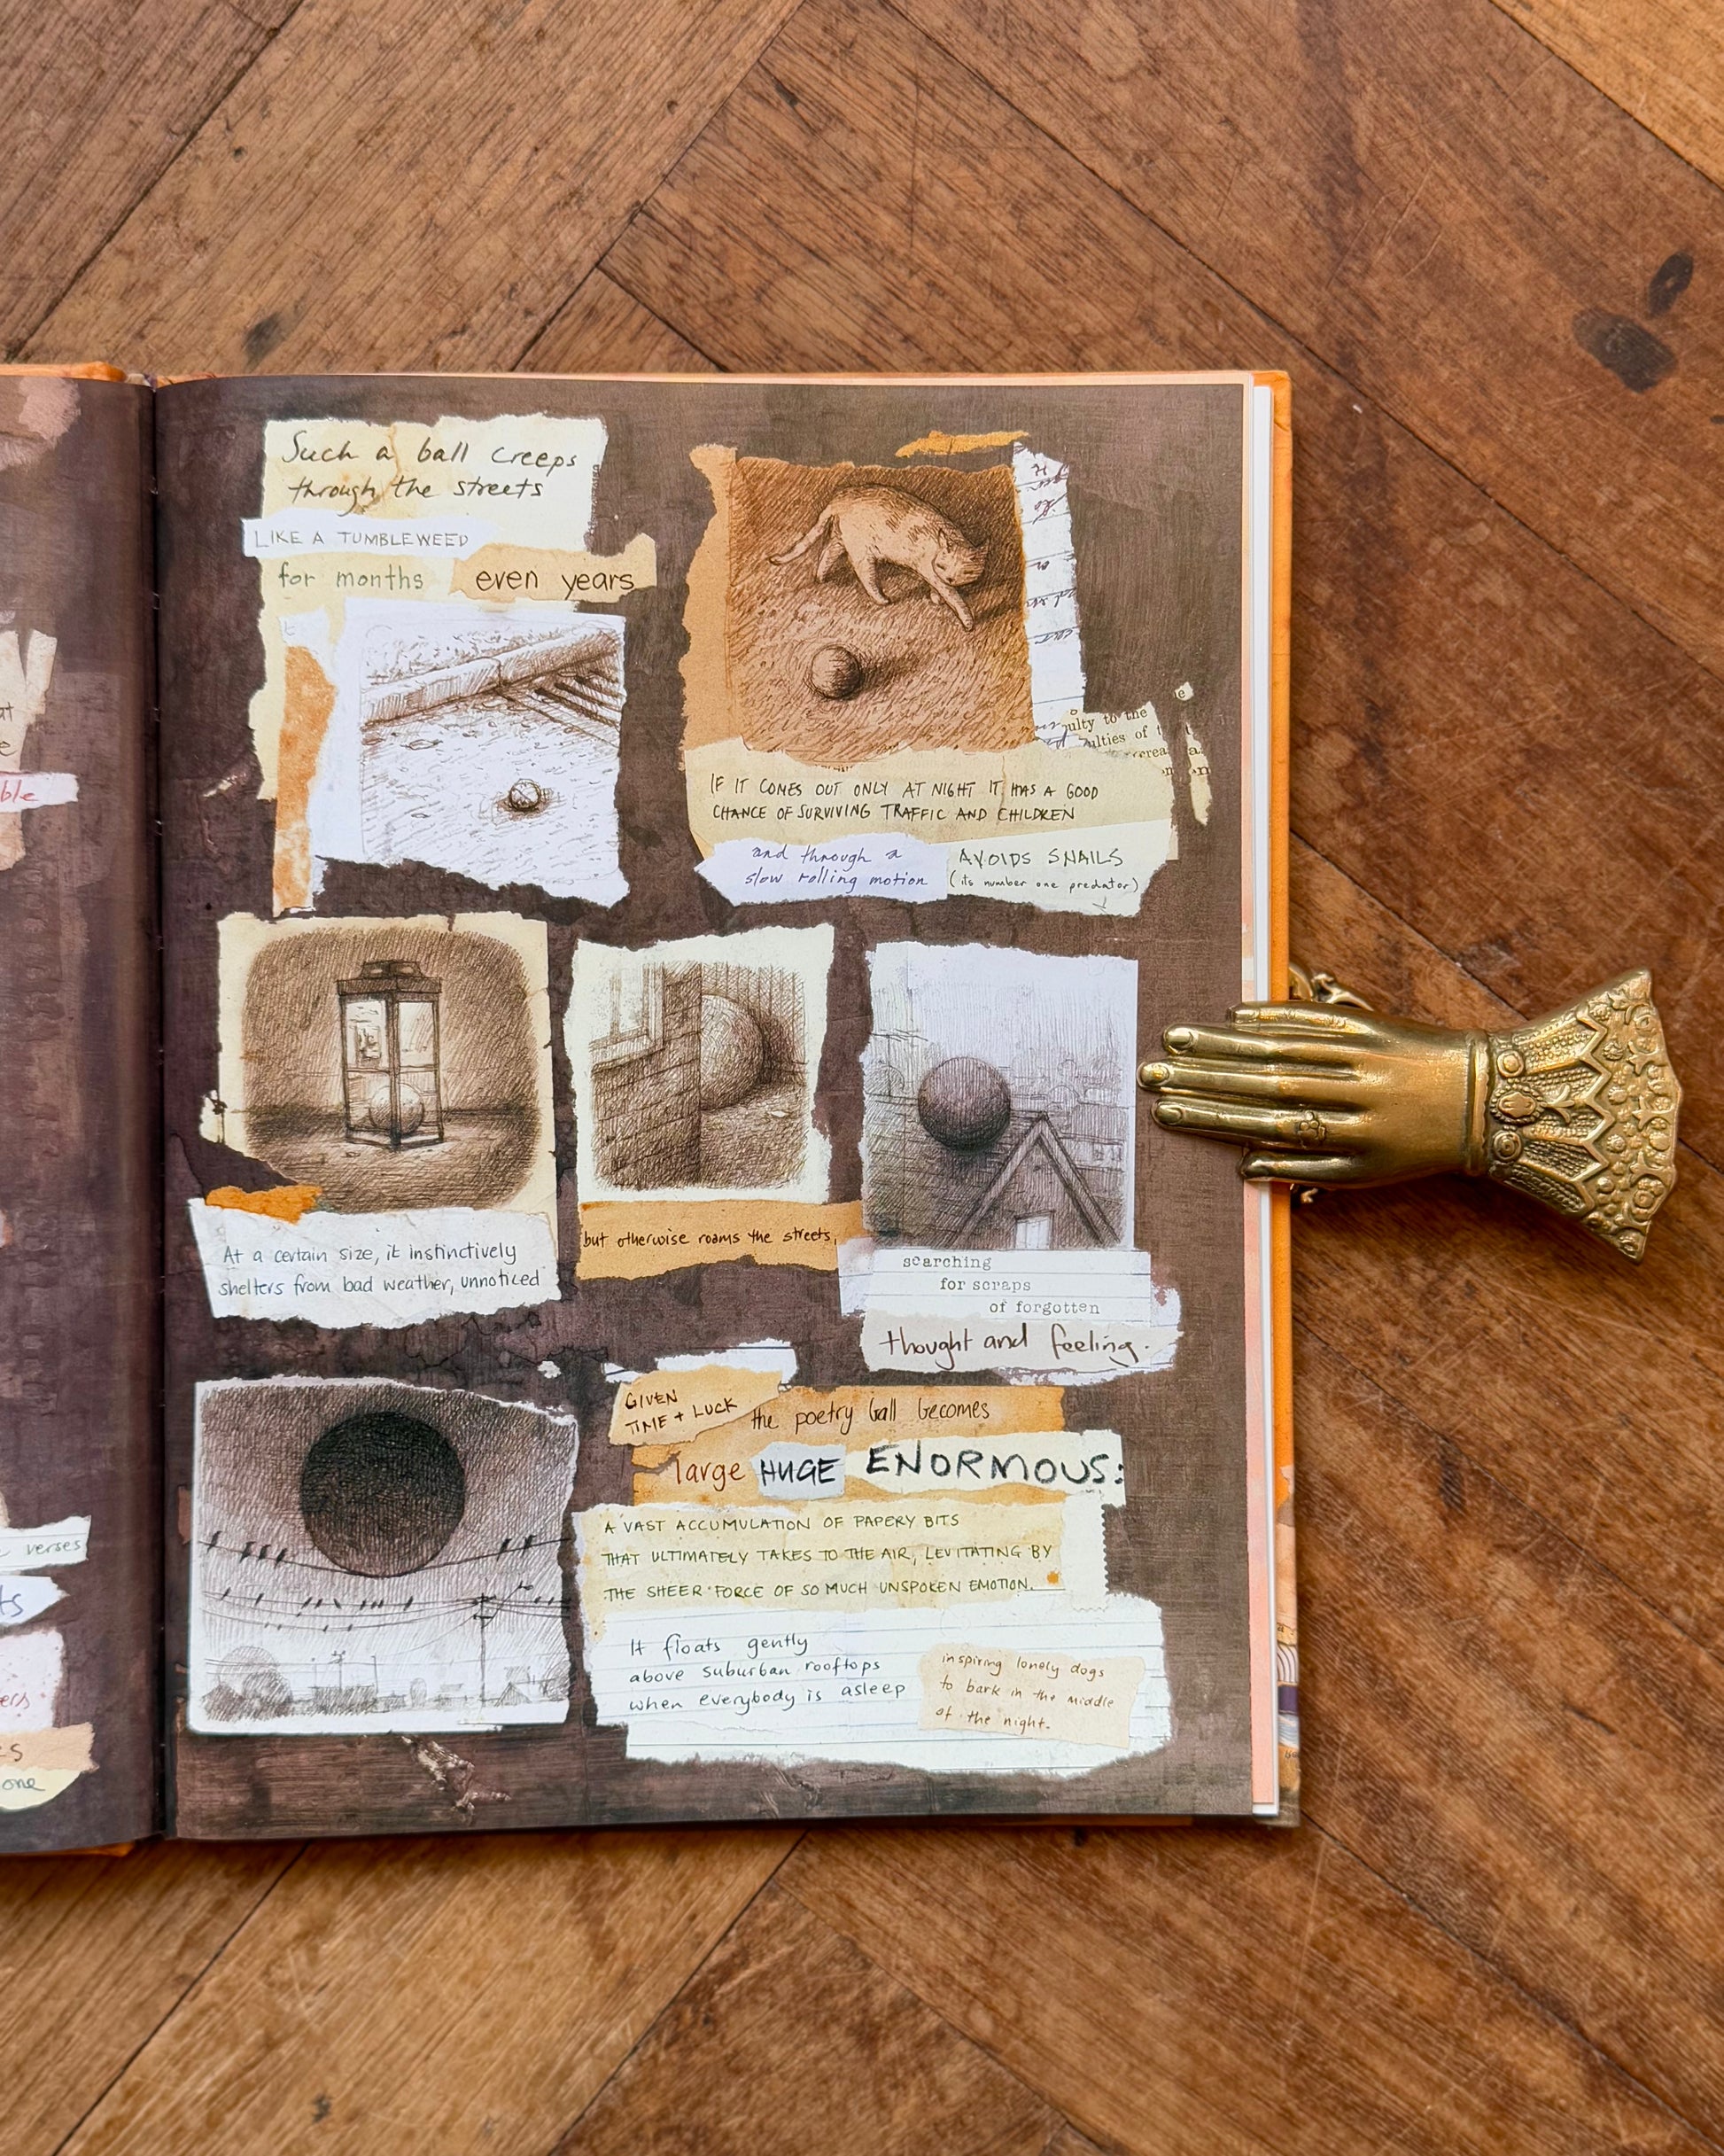 ble
verses
ts
es
one
Such a ball creeps
through the streets
LIKE A TUMBLEWEED
for months even years
ulty to the
ulties of
IF IT COMES OUT ONLY AT NIGHT IT HAS A GOOD
CHANCE OF SURVIVING TRAFFIC AND CHILDREN
and through a
slow rolling motion
AVOIDS SNAILS
(its number one predator)
At a certain size, it instinctively
shelters from bad weather, unnoticed
but otherwise roams the streets,
searching
for scraps
of forgotten
thought and feeling.
GIVEN
TIME + LUCK
the poetry ball becomes
large HUGE ENORMOUS:
A VAST ACCUMULATION OF PAPERY BITS
THAT ULTIMATELY TAKES TO THE AIR, LEVITATING BY
THE SHEER FORCE OF SO MUCH UNSPOKEN EMOTION.
It floats gently
above suburban rooftops
when everybody is asleep
inspiring lonely dogs
to bark in the middle
of the night.